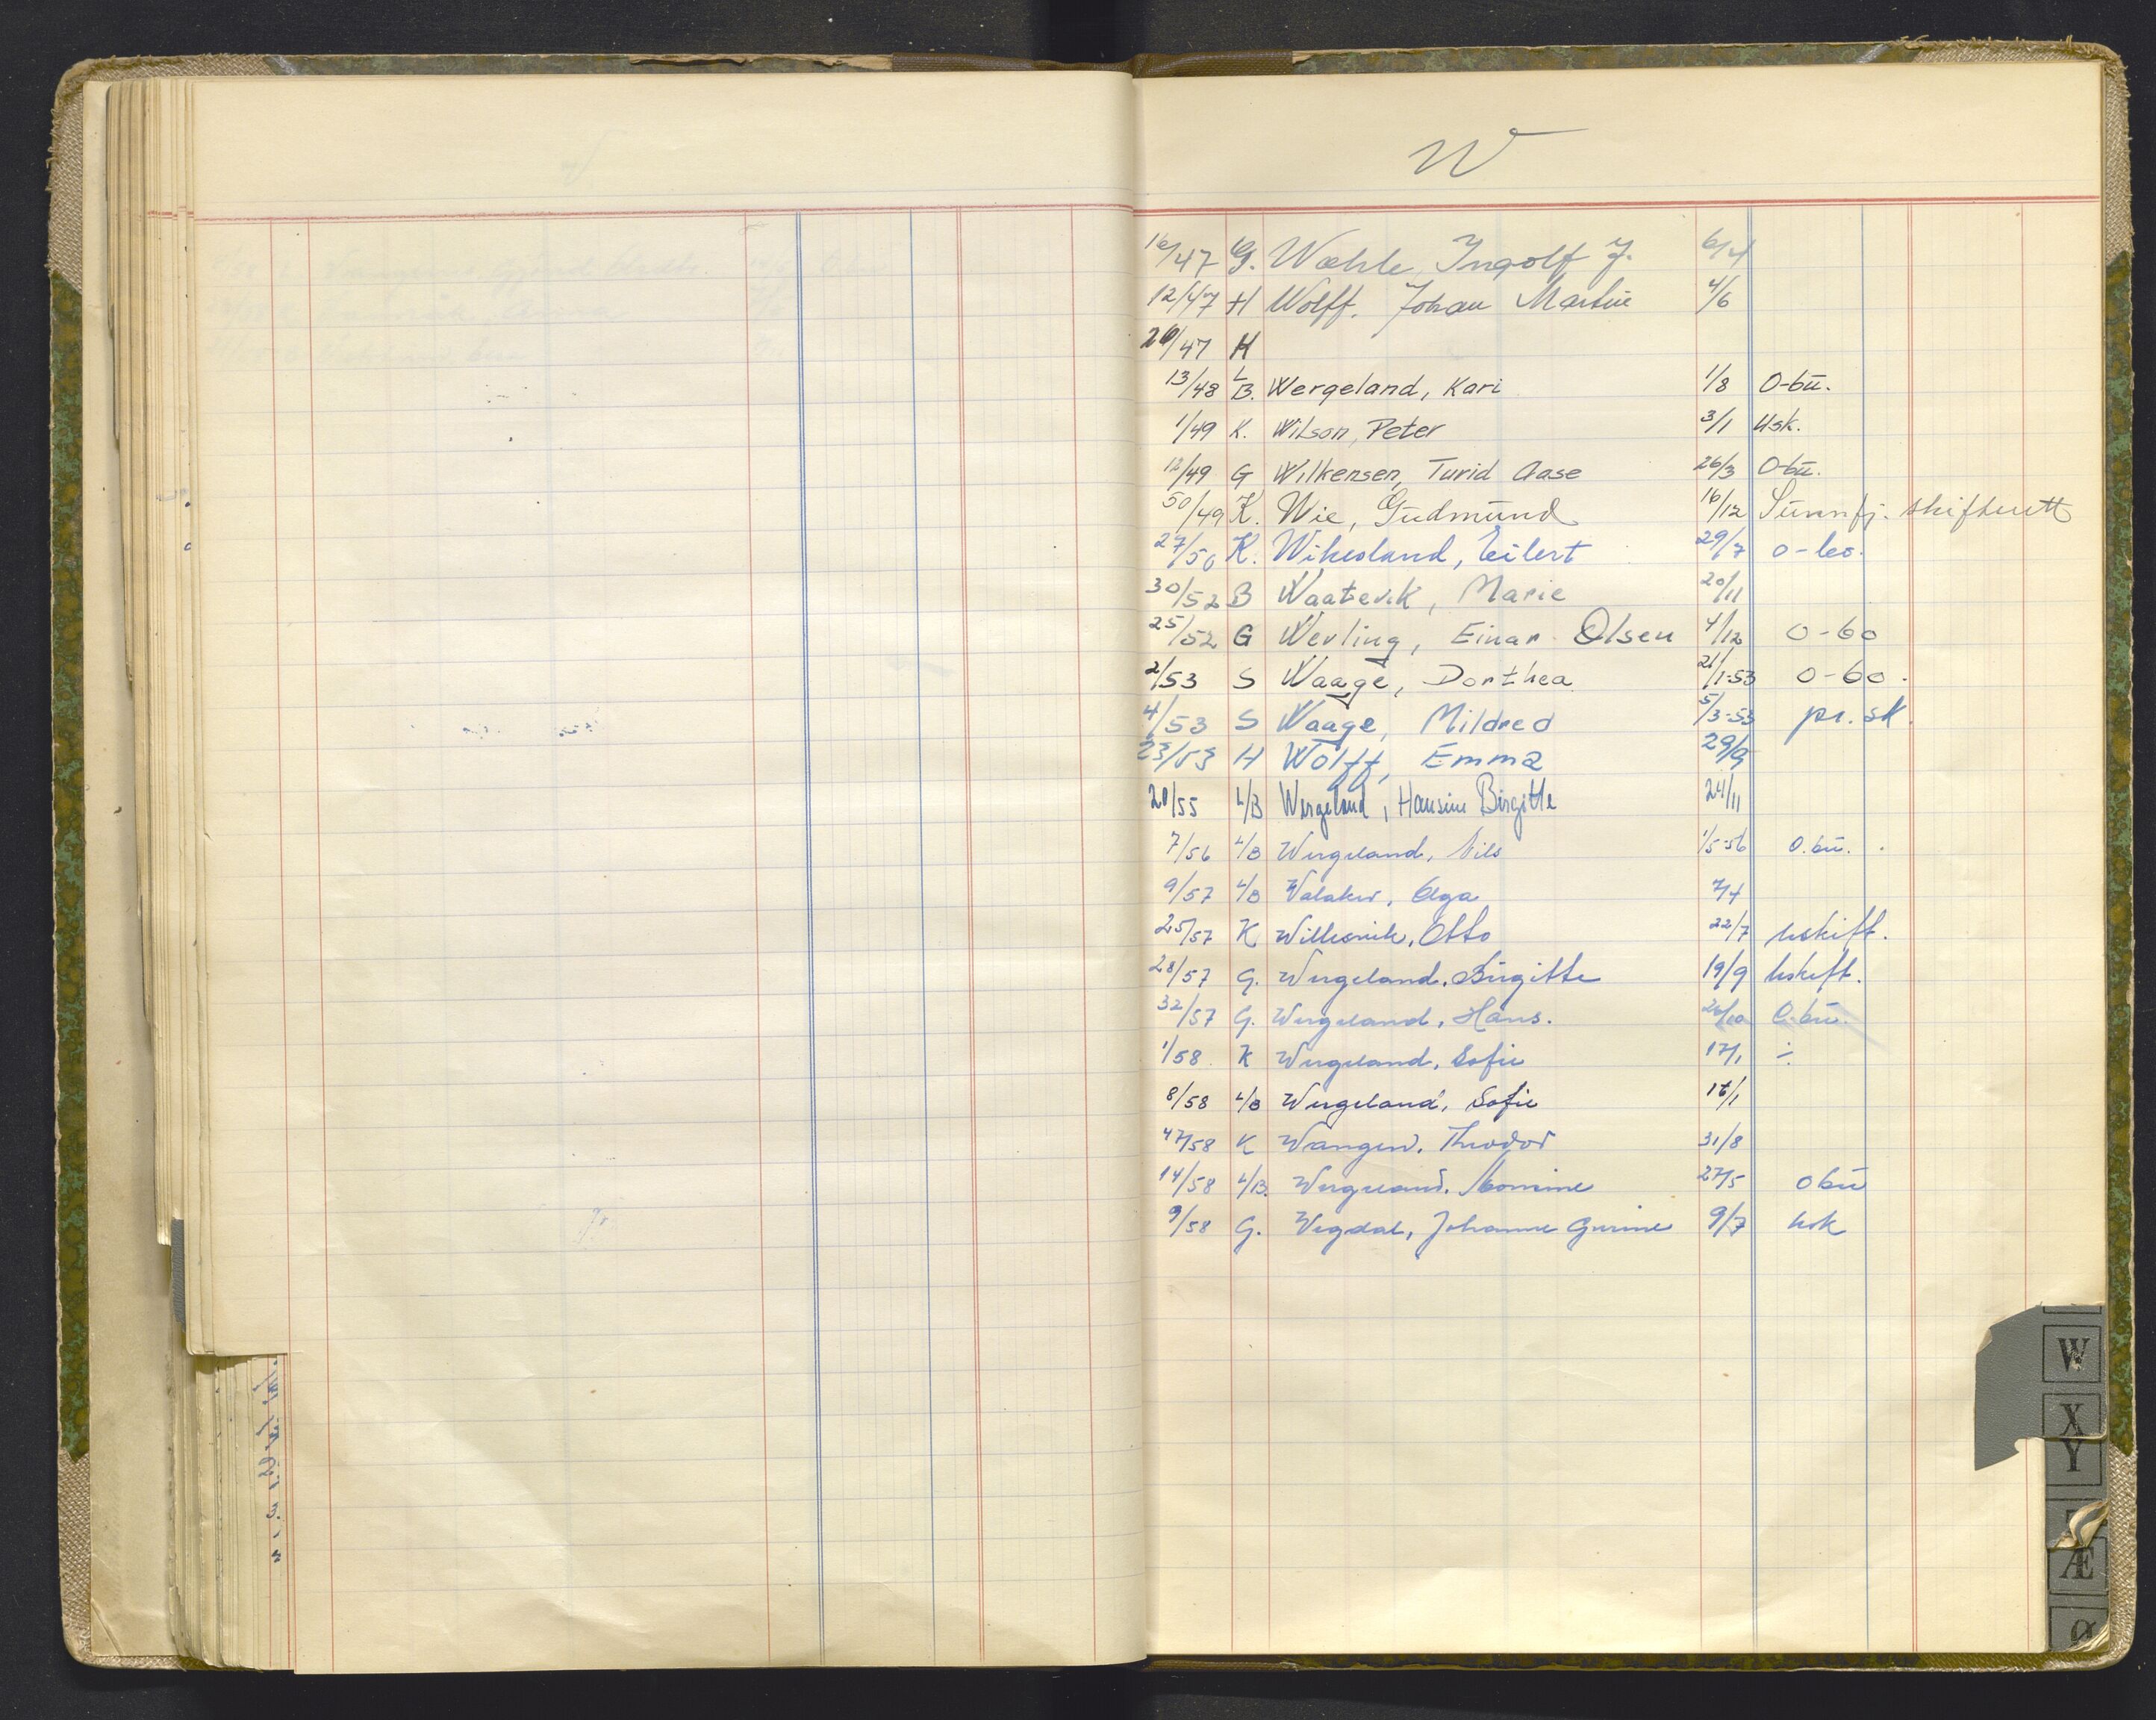 W
16/47 G. Wæhle, Ingolf J. 6/4
12/47 H Wolff, Johan Martin 4/6
26/47 H
13/48 L/B. Wergeland, Kari 1/8 O-bu.
1/49 K. Wilson, Peter 3/1 Usk.
12/49 G Wilkensen, Turid Aase 26/3 O-bu.
50/49 K. Wie, Gudmund 16/12 Sunnfj. skifterett
27/50 K. Wikesland, Eilert 29/7 o-bo.
30/52 B Waatevik, Marie 20/11
25/52 G Werling, Einar Olsen 4/12 O-bo
2/53 S Waage, Dorthea 21/1-53 O-bo.
4/53 S Waage, Mildred 5/3-53 pr. sk.
23/53 H Wolff, Emma 29/9
20/55 L/B Wergeland, Hansine Birgitte 24/11
7/56 L/B Wergeland, Nils 1/5-56 O.bu.
9/57 L/B Walaker, Olga 7/4
25/57 K Otto 22/7 uskift.
28/57 G. Wergeland, Birgitte 19/9 Uskift.
32/57 G. Wergeland, Hans. O.bu.
1/58 K Wergeland, Sofie 17/1 ÷
8/58 L/B Wergeland, Sofie 17/1
47/58 K Wangen, Theodor 31/8
14/58 L/B. Wergeland, 27/5 obu
9/58 G. Wegdal, Johanne Gurine 9/7 usk
W
X
Y
Æ
Ø